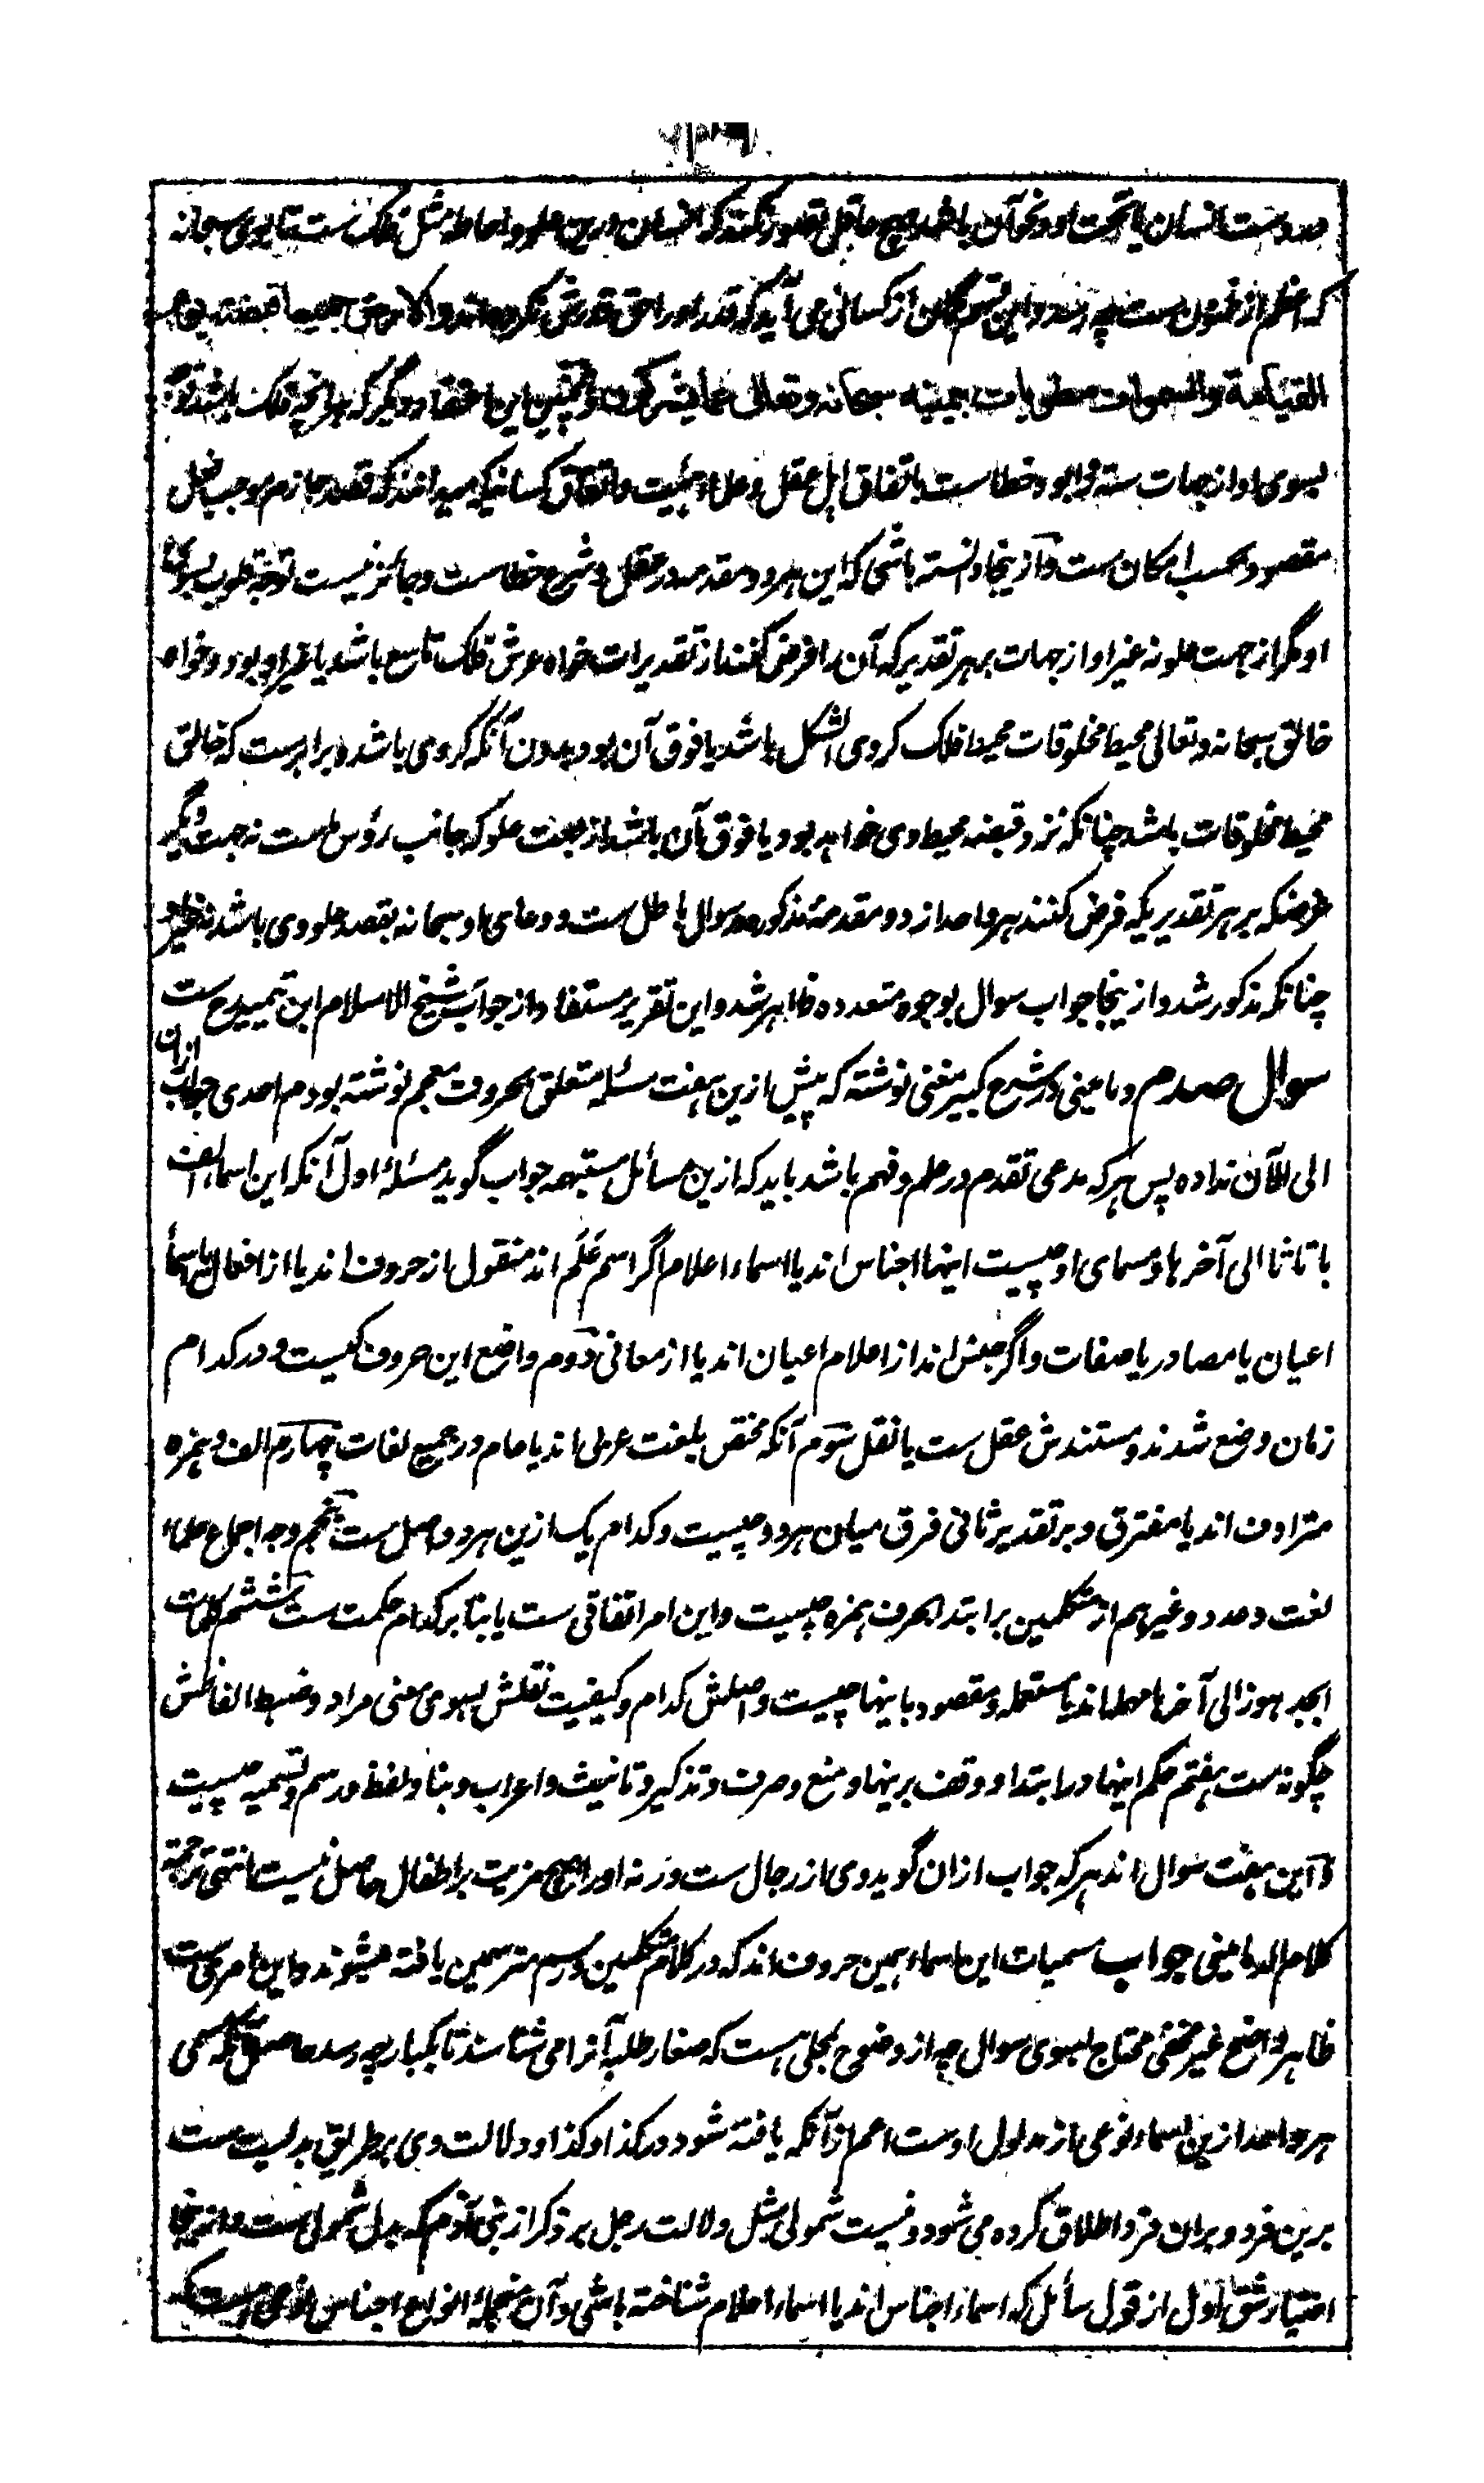 در دست انسان یا تحت او و نحو آن باشد هیچ عاقل تصور نکند که انسان درین علو و احاطه مثل فلک ست تا بوی سبحانه
که اعظم از ظنون ست چه رسد و این قسم گمان از کسانی می آید که قدر او را حق قدرش نکرده اند والارض جمیعا قبضته یوم
القیامة والسموات مطویات بیمینه سبحانه وتعالی عما یشرکون و همچنین این اعتقاد دیگر که هرآنچه فلک باشد توجه
بسوی او از جهات سته روا بود خطاست باتفاق اهل عقل و علماء هیئت و باتفاق کسانیکه میدانند که قصد جازم موجب فعل
مقصود بحسب امکان ست و از ینجا دانسته باشی که این هر دو مقدمه در عقل و شرع خطاست و جائز نیست توجه قلوب بسوی
او مگر از جهت علو نه غیر او از جهات بر هر تقدیر که آن را فرض کنند از تقدیرات خواه عرش فلک تاسع باشد یا غیر او بود و خواه
خالق سبحانه وتعالی محیط مخلوقات محیط افلاک کروی الشکل باشد یا فوق آن بود بدون آنکه کروی باشد و برابرست که خالق
محیط مخلوقات باشد چنانکه نزد قبضه محیط وی خواهد بود یا فوق آن باشد از جهت علو که جانب رؤس ماست نه جهت دیگر
غرضکه بر هر تقدیریکه فرض کنند هر واحد از دو مقدمهٔ مذکوره سوال باطل ست و دعای او سبحانه بقصد علو وی باشد نه غیر او
چنانکه مذکور شد و از ینجا جواب سوال بوجوه متعدده ظاهر شد و این تقریر مستفاد از جواب شیخ الاسلام ابن تیمیه رح ست
سوال صدم دمامینی در شرح کبیر مغنی نوشته که پیش ازین هفت مسئله متعلق بحروف معجم نوشته بودم احدی جواب ازان
الی الآن نداده پس هر که مدعی تقدم در علم و فهم باشد باید که ازین مسائل مستبهمه جواب گوید مسئلهٔ اول آنکه این اسما الف
با تا ثا الی آخرها و مسمای او چیست اینها اجناس اند یا اسماء اعلام اگر اسم عَلَم اند منقول از حروف اند یا از افعال یا اسماء
اعیان یا مصادر یا صفات و اگر جنس اند از اعلام اعیان اند یا از معانی دوم واضع این حروف کیست و در کدام
زمان وضع شدند و مستندش عقل ست یا نقل سوم آنکه مختص بلغت عربی اند یا عام در جمیع لغات چهارم الف و همزه
مترادف اند یا مفترق و بر تقدیر ثانی فرق میان هر دو چیست و کدام یک ازین هر دو اصل ست پنجم وجه اجماع علماء
لغت و عدد و غیرهم از متکلمین بر ابتدا بحرف همزه چیست و این امر اتفاقی ست یا بنا بر کدام حکمت ست ششم کلمات
ابجد هوز الی آخرها مهمل اند یا مستعمله و مقصود باینها چیست و اصلش کدام و کیفیت نقلش بسوی معنی مراد و ضبط الفاظش
چگونه ست هفتم حکم اینها در ابتدا و وقف برینها و منع و صرف و تذکیر و تانیث و اعراب و بنا و لفظ و رسم و تسمیه چیست
و این هفت سوال اند هر که جواب ازان گوید وی از رجال ست ورنه او را هیچ مزیت بر اطفال حاصل نیست انتهی ترجمة
کلام الدمامینی جواب مسمیات این اسماء همین حروف اند که در کلام متکلمین و رسم مترسمین یافته میشوند و این امریست
ظاهر واضح غیر مختفی محتاج بسوی سوال چه از وضوح بمحلی ست که صغار طلبه آنرا می شناسند تا بکبار چه رسد حاصل آنکه مسمی
هر واحد ازین اسماء نوعی از مدلول اوست اعم از آنکه یافته شود در کذا و کذا و دلالت وی بر طریق بدلیت ست
برین فرد و بران فرد اطلاق کرده می شود و نیست شمولی مثل دلالت رجل بر ذکر از بنی آدم که بدل شمولی ست و از ینجا
اختیار شق اول از قول سائل که اسماء اجناس اند یا اسماء اعلام شناخته باشی و آن منجملهٔ انواع اجناس نوعی ست که